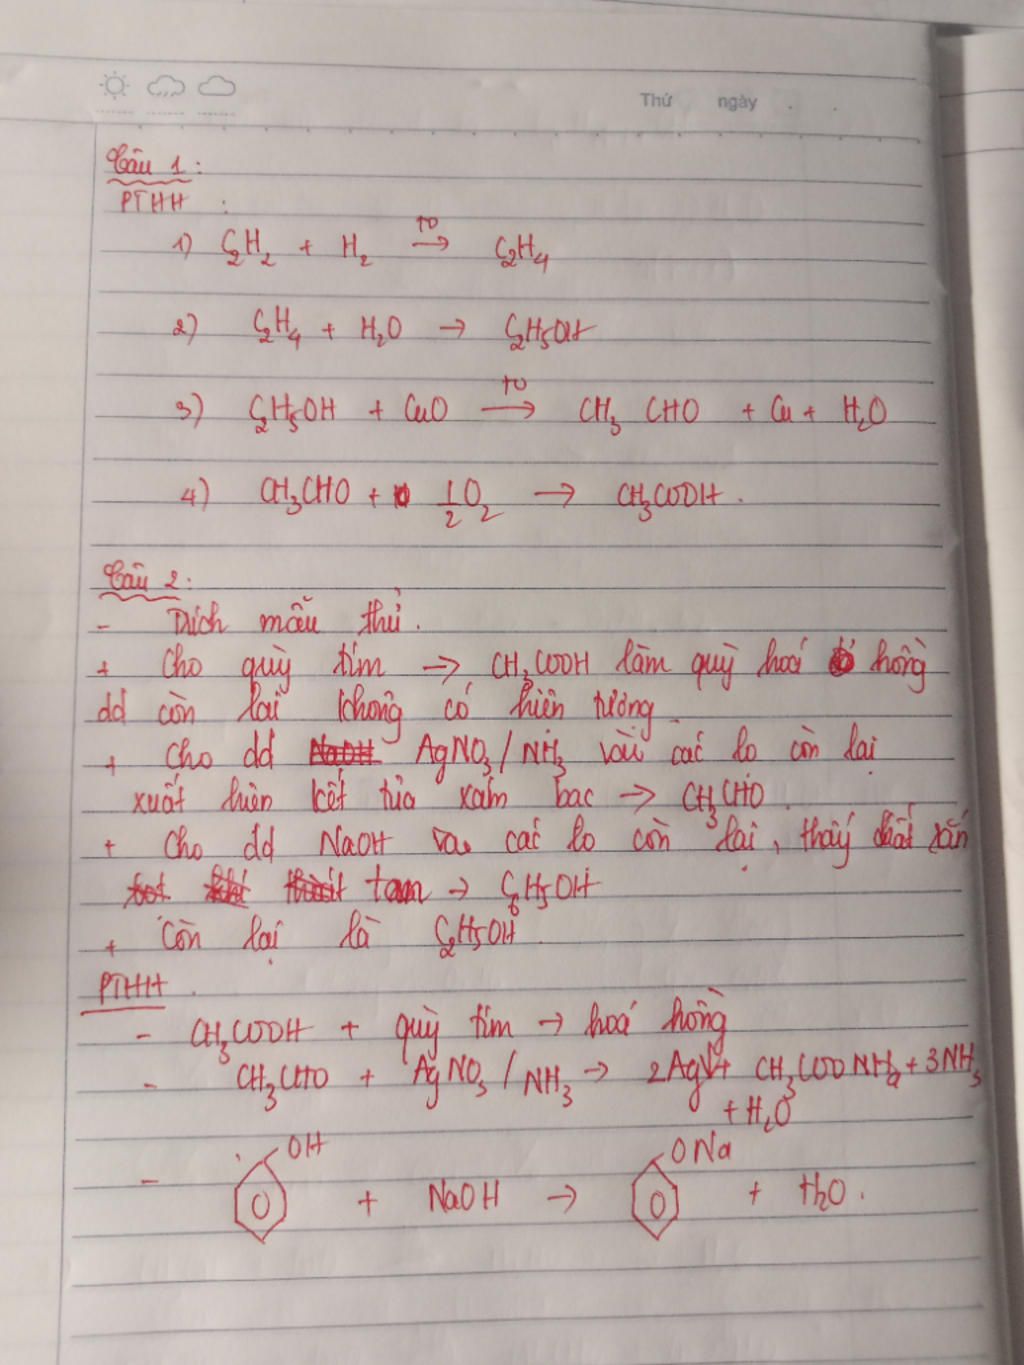 Thứ ngày
Câu 1:
PTHH :
1) C2H2 + H2 →to C2H4
2) C2H4 + H2O → C2H5OH
3) C2H5OH + CuO →to CH3 CHO + Cu + H2O
4) CH3CHO + 1/2O2 → CH3COOH.
Câu 2:
- Trích mẫu thử.
+ Cho quỳ tím → CH3COOH làm quỳ hoá hồng
dd còn lại không có hiện tượng.
+ Cho dd AgNO3/NH3 vào các lọ còn lại
xuất hiện kết tủa xám bạc → CH3CHO.
+ Cho dd NaOH vào các lọ còn lại, thấy chất rắn
tan → C6H5OH
+ Còn lại là C2H5OH.
PTHH.
- CH3COOH + quỳ tím → hoá hồng
- CH3CHO + AgNO3/NH3 → 2Ag↓ + CH3COONH4 + 3NH3
+ H2O
OH ONa
- + NaOH → + H2O.